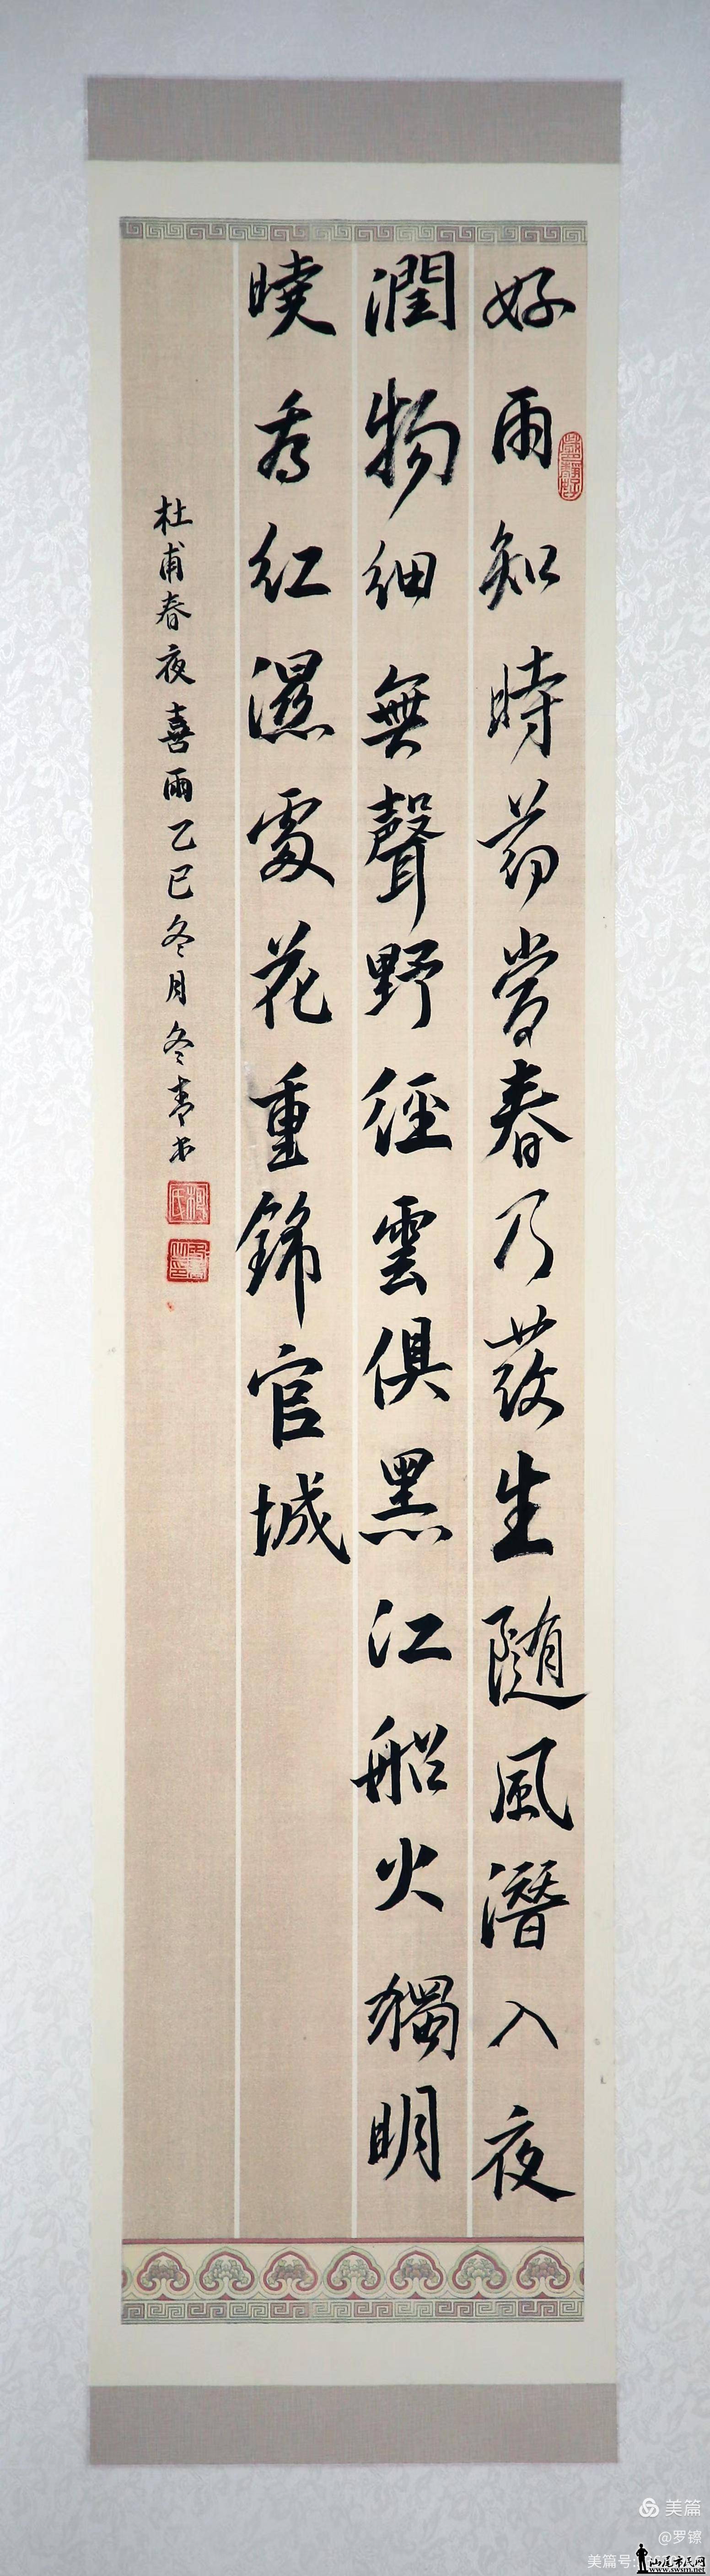 好雨知時節當春乃發生随風潛入夜
潤物細無聲野徑雲俱黑江船火獨明
曉看紅濕處花重錦官城
杜甫春夜喜雨乙巳冬月冬青书
美篇
@罗镲
美篇号:
汕尾市民网
www.swsm.net